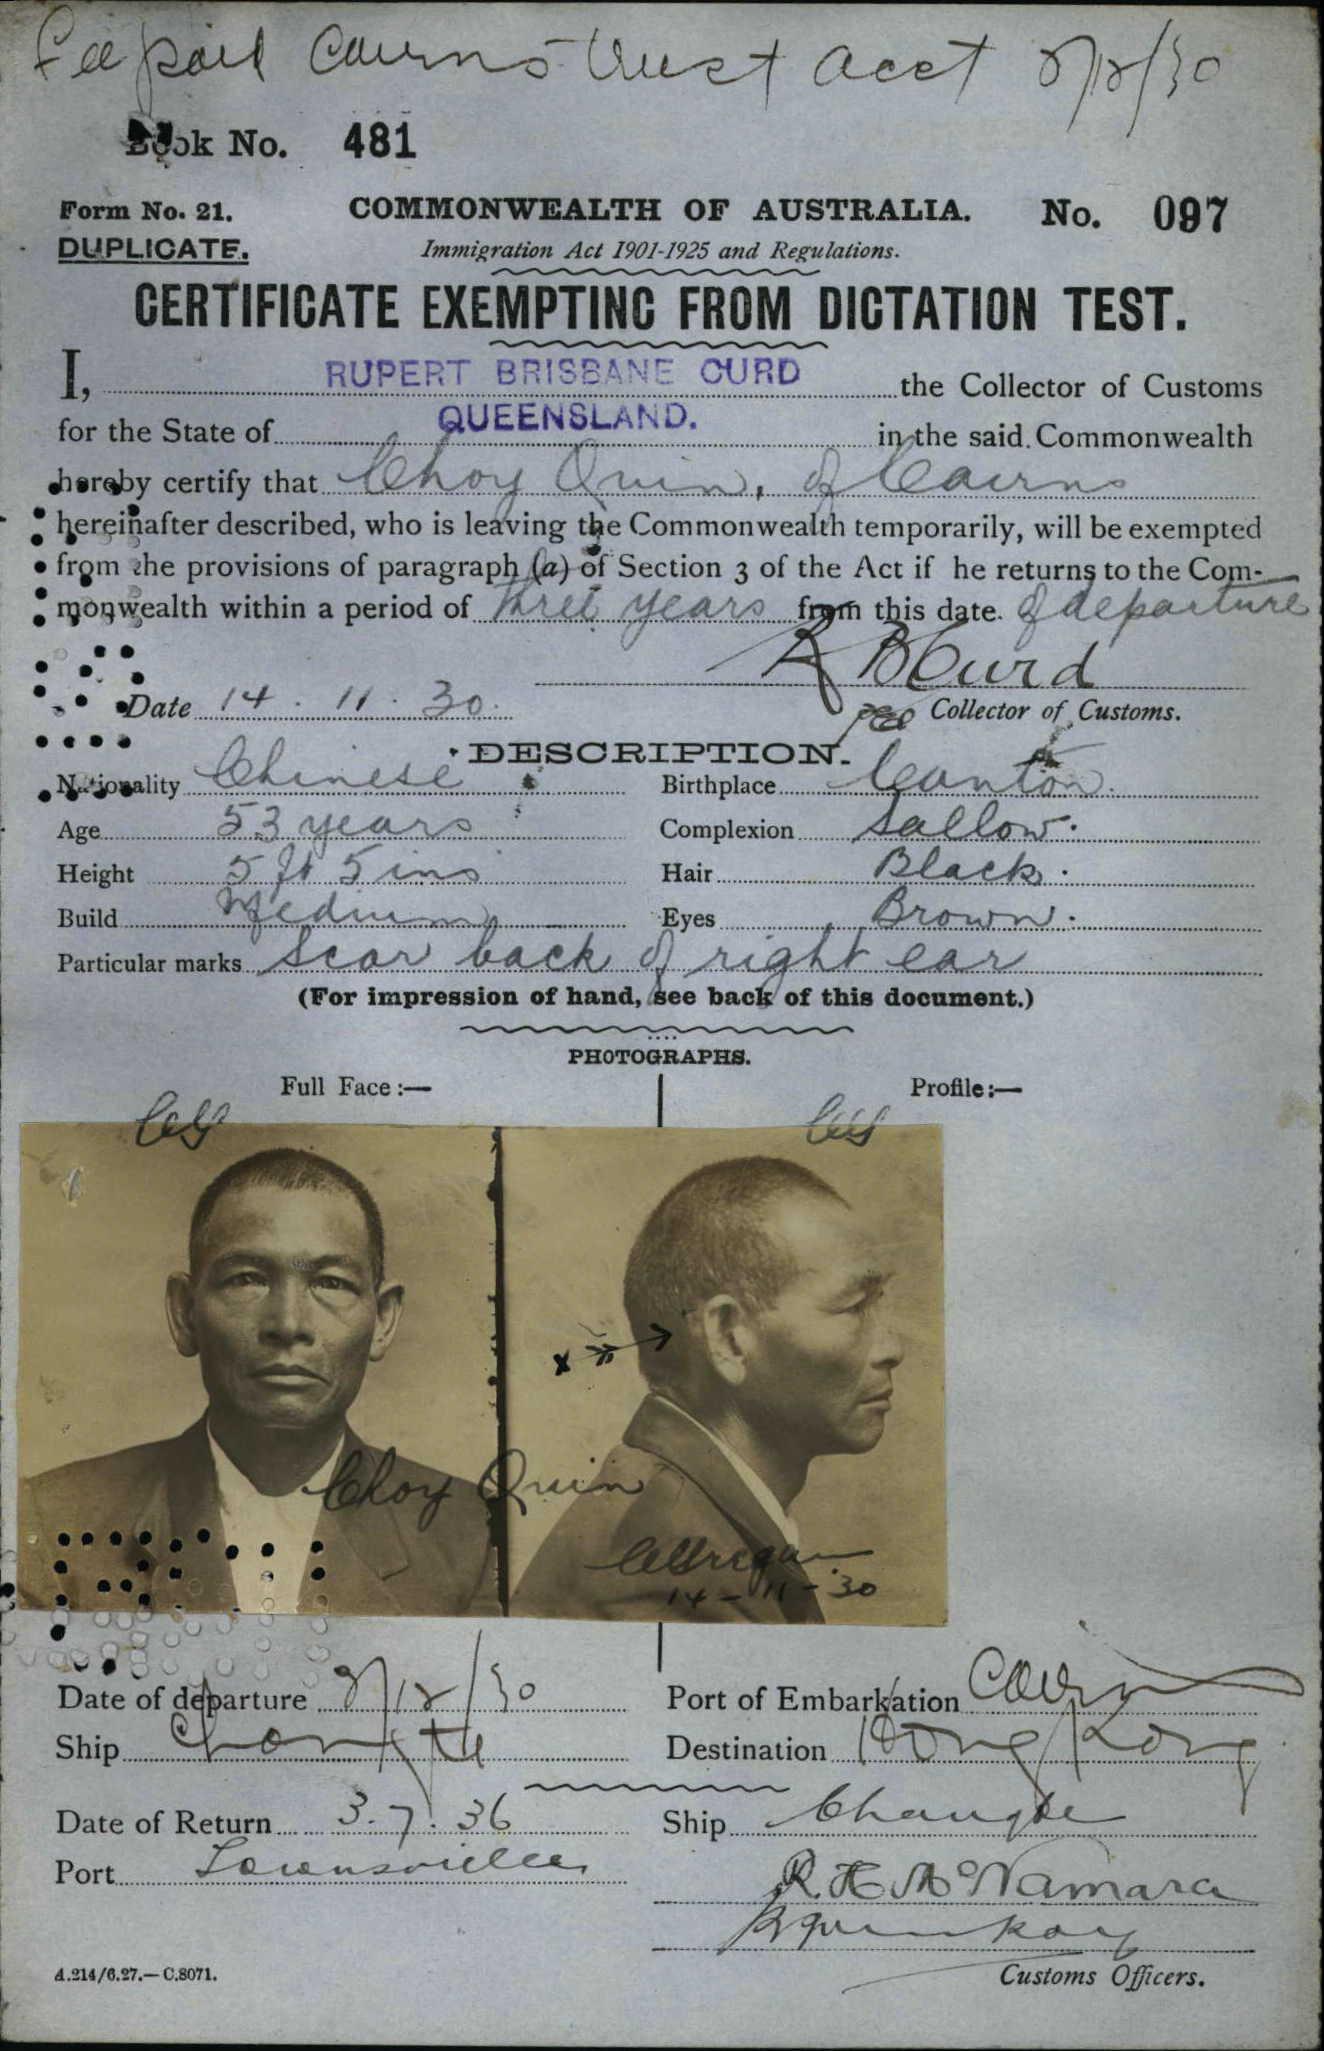 Fee paid Cairns Trust Acct 8/12/30
Book No. 481
Form No. 21. COMMONWEALTH OF AUSTRALIA. No. 097
DUPLICATE. Immigration Act 1901-1925 and Regulations.
CERTIFICATE EXEMPTING FROM DICTATION TEST.
I, RUPERT BRISBANE CURD the Collector of Customs
for the State of QUEENSLAND. in the said Commonwealth
hereby certify that Choy Quin, of Cairns
hereinafter described, who is leaving the Commonwealth temporarily, will be exempted
from the provisions of paragraph (a) of Section 3 of the Act if he returns to the Com-
monwealth within a period of three years from this date of departure
R B Curd
Date 14.11.30. Collector of Customs.
DESCRIPTION.
Nationality Chinese Birthplace Canton.
Age 53 years Complexion Sallow.
Height 5 ft 5 ins Hair Black.
Build Medium Eyes Brown.
Particular marks Scar back of right ear
(For impression of hand, see back of this document.)
PHOTOGRAPHS.
Full Face:— Profile:—
x
Choy Quin
14-11-30
Date of departure 8/12/30 Port of Embarkation Cairns
Ship Changte Destination Hong Kong
Date of Return 3.7.36 Ship Changte
Port Townsville
R. H. McNamara
A.214/6.27.—C.8071. Customs Officers.